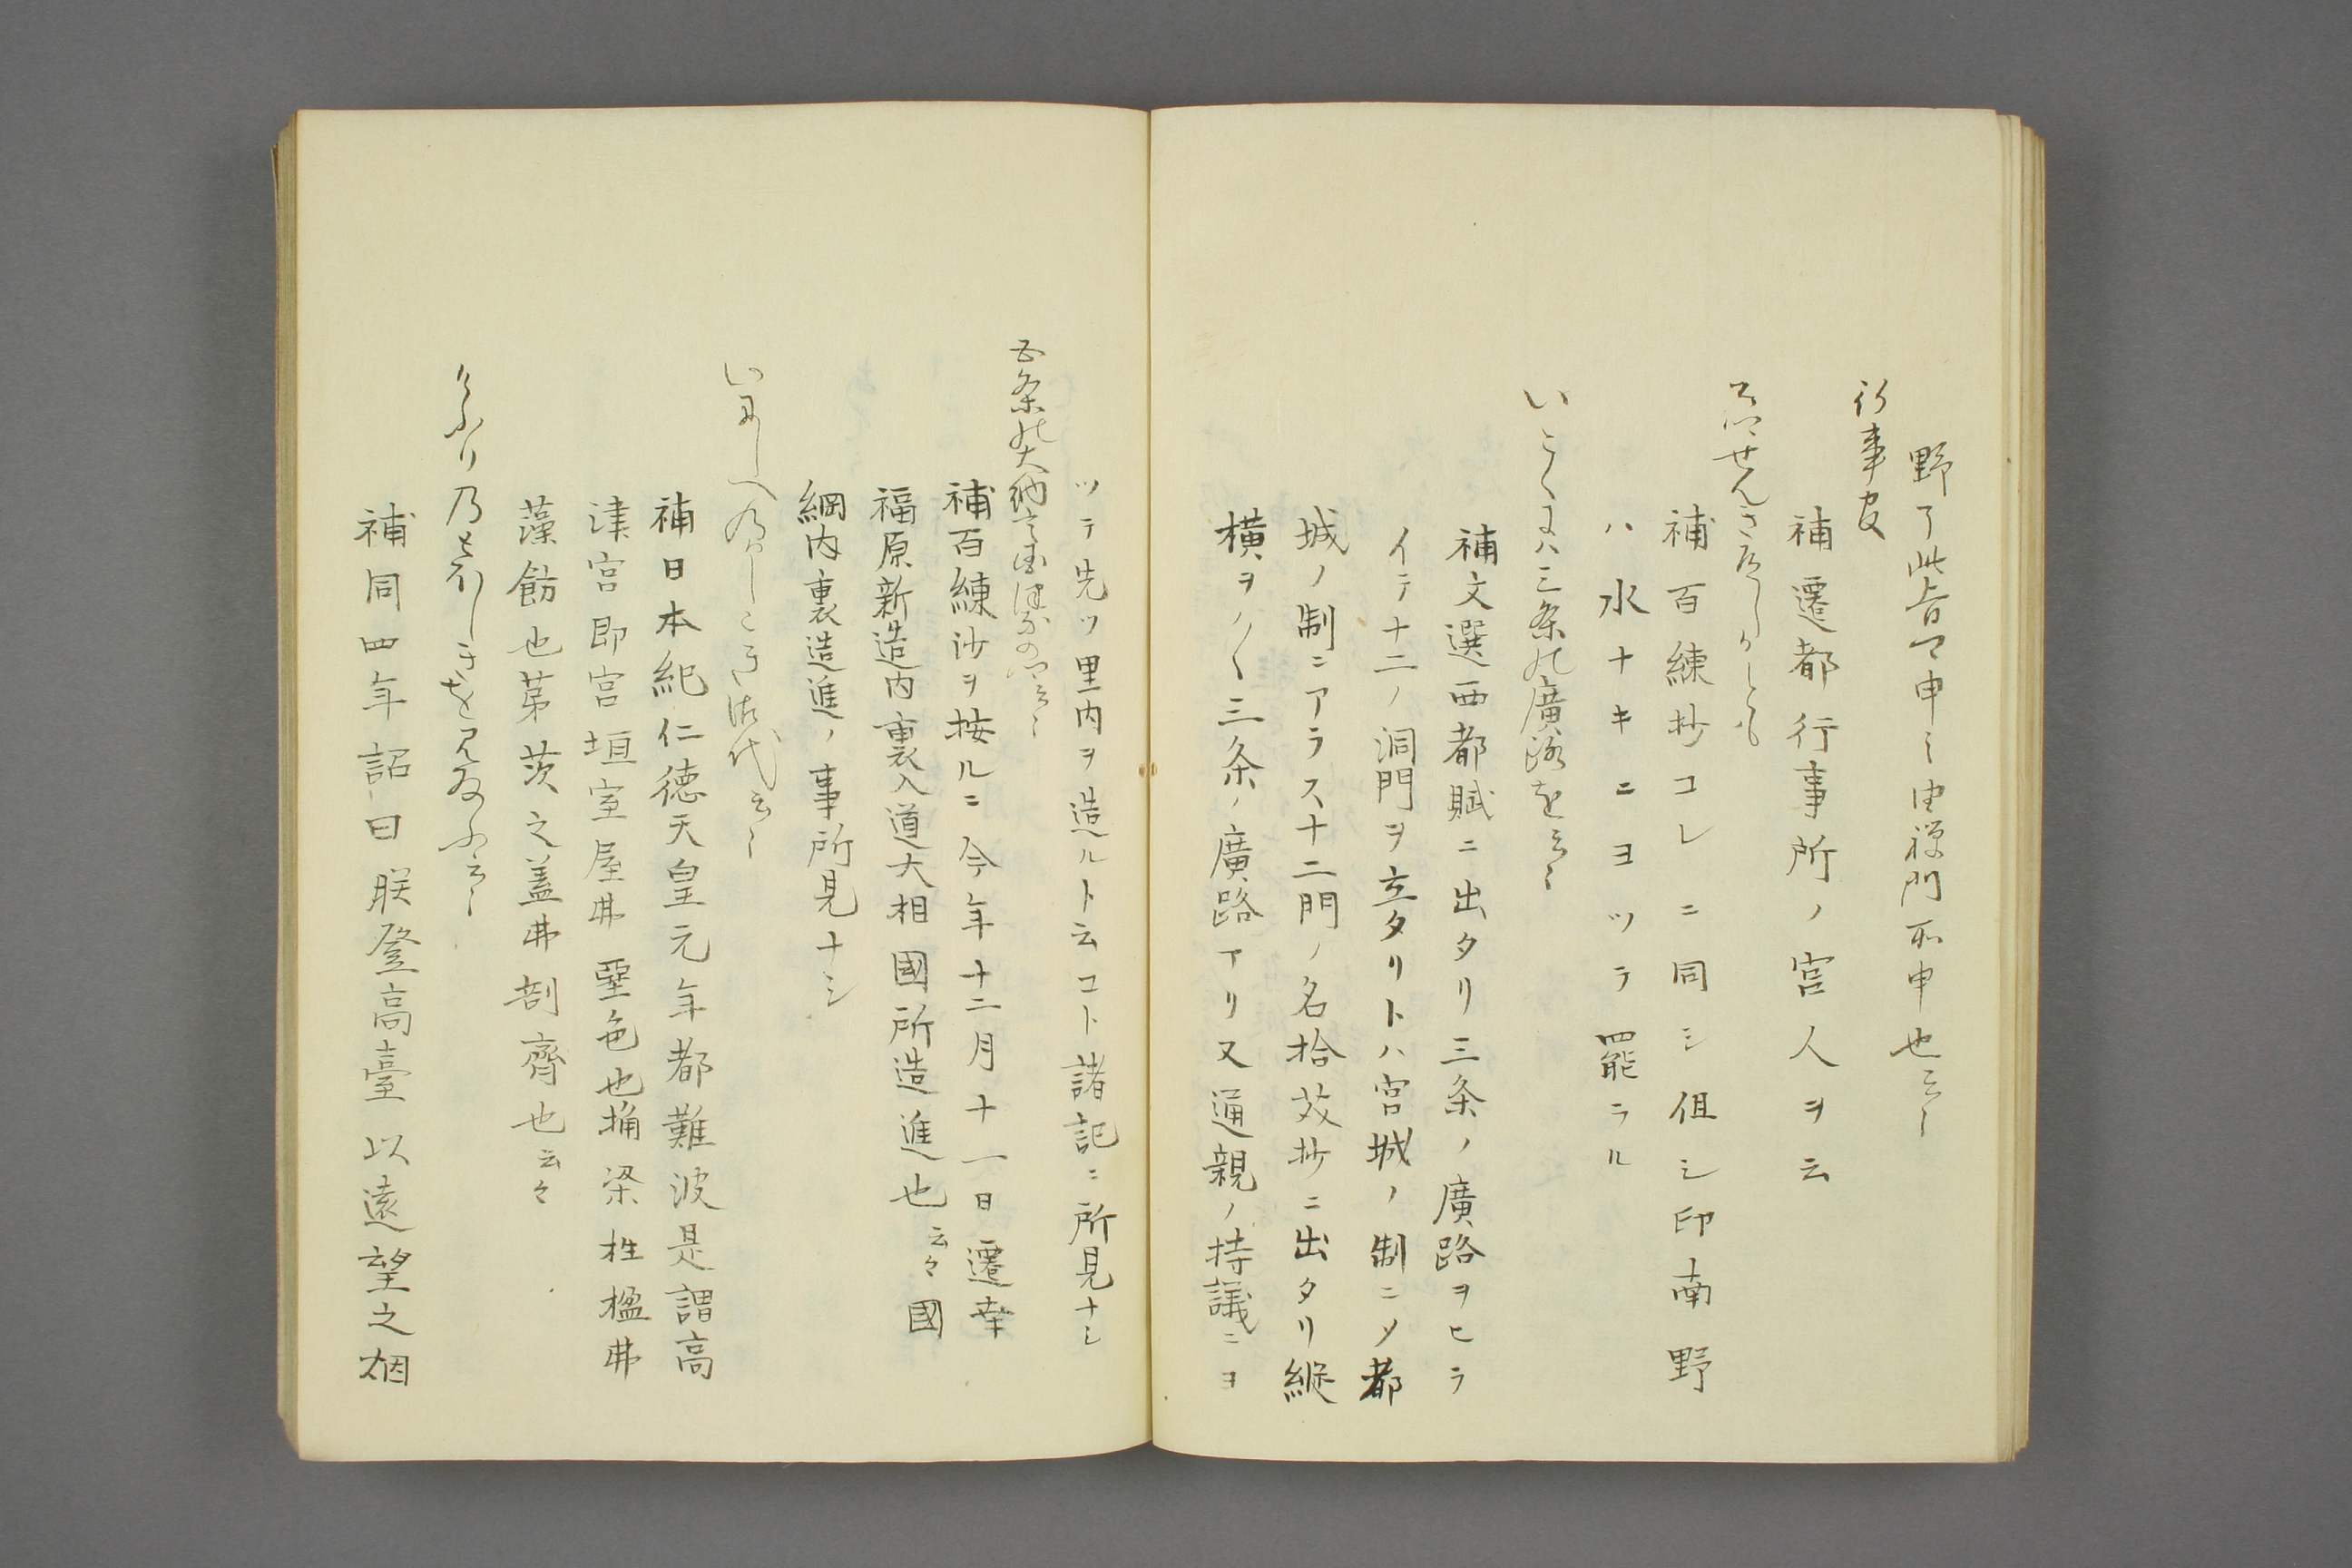 野了此旨可申之由禅門所申也云々
行事官
補遷都行事所ノ宮人ヲ云
こはせんきありしかとも
補百練抄コレニ同シ但シ印南野
ハ水ナキニヨツテ罷ラル
いこくには三条の廣路を云々
補文選西都賦ニ出タリ三条ノ廣路ヲヒラ
イテ十二ノ洞門ヲ立タリトハ宮城ノ制ニメ都
城ノ制ニアラス十二門ノ名拾芥抄ニ出タリ縱
横ヲノ〱三条ノ廣路アリ又通親ノ持議ニヨ
ツテ先ツ里内ヲ造ルト云コト諸記ニ所見ナシ
五条の大納言国綱の云々
補百練沙ヲ按ルニ今年十二月十一日遷幸
福原新造内裏入道大相國所造進也云々國
綱内裏造進ノ事所見ナシ
いにしへのかしこき御代云々
補日本紀仁徳天皇元年都難波是謂高
津宮即宮垣室屋弗堊色也桷梁柱楹弗
藻餝也茅茨之蓋弗剖齊也云々
けふりのともしきを見給ふ云々
補同四年詔曰朕登高臺以遠望之烟